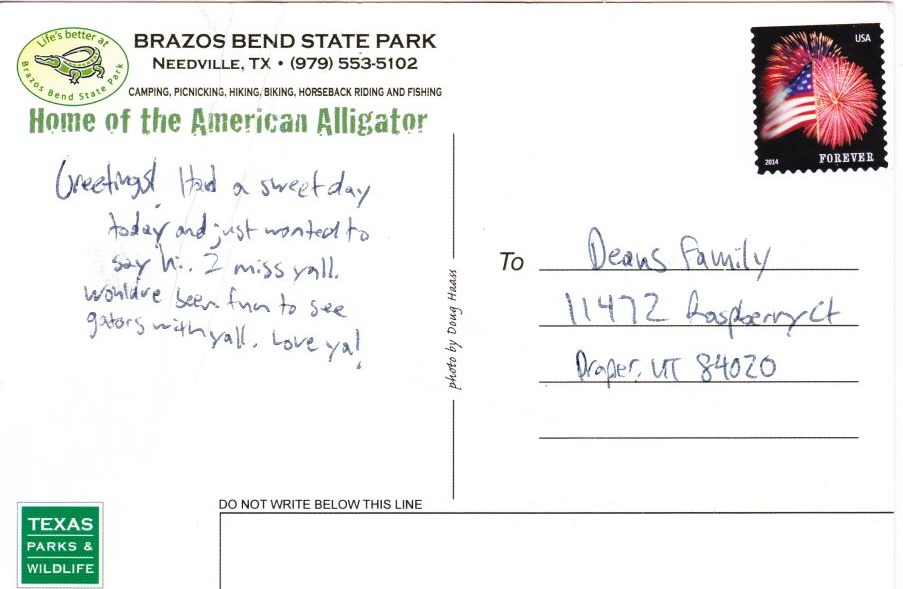 Life's better at
Brazos Bend State Park
BRAZOS BEND STATE PARK
NEEDVILLE, TX • (979) 553-5102
CAMPING, PICNICKING, HIKING, BIKING, HORSEBACK RIDING AND FISHING
Home of the American Alligator
Greetings! Had a sweet day
today and just wanted to
say hi. I miss yall.
Wouldve been fun to see
gators with yall. Love ya!
photo by Doug Haass
USA
2014 FOREVER
To Deans Family
11472 Raspberry Ct
Draper, UT 84020
DO NOT WRITE BELOW THIS LINE
TEXAS
PARKS &
WILDLIFE